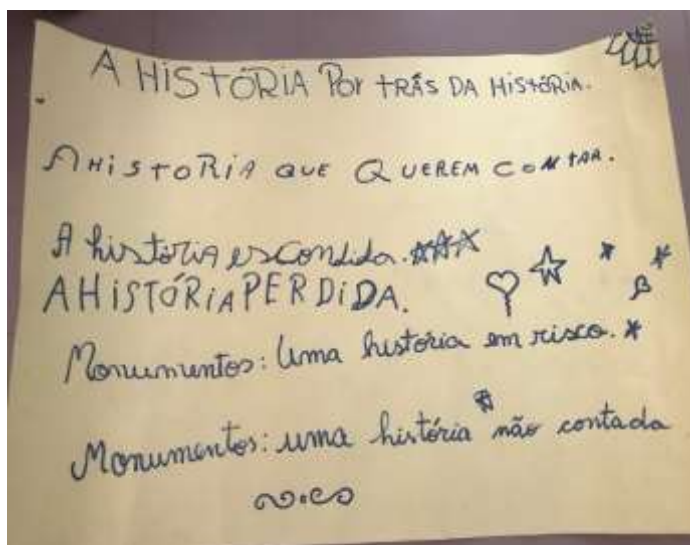 A HiSTÓRiA Por TRÁS DA HiSTÓRiA.
A HiSTORiA QUE QUEREM CONTAR.
A história escondida.
A HiSTÓRiA PERDiDA.
Monumentos: Uma história em risco.
Monumentos: uma história não contada